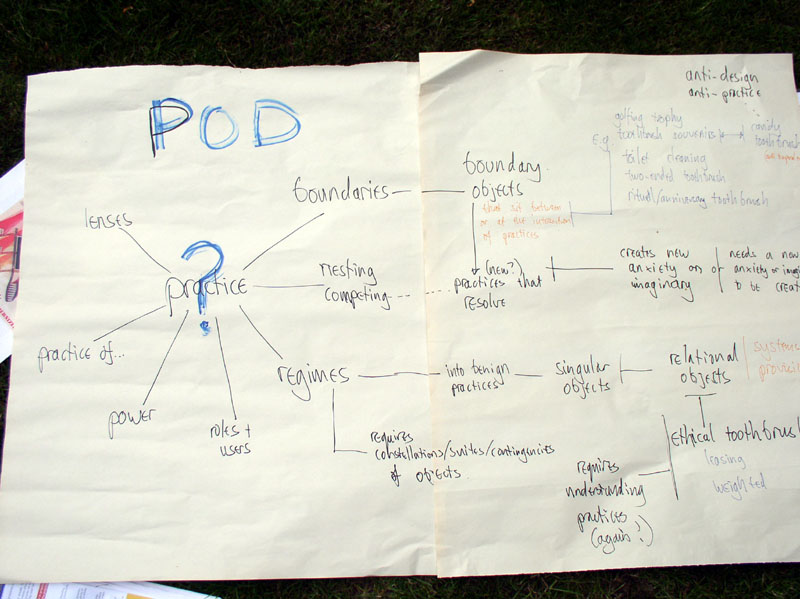 POD
anti-design
anti-practice
E.g
golfing trophy
toothbrush souvenirs
cavity
toothbrush
toilet cleaning
two-ended toothbrush
ritual/anniversary toothbrush
boundary
objects
that sit between
or at the intersection
of practices
boundaries
lenses
?
practice
nesting
competing
(new?)
practices that
resolve
creates new
anxiety or
imaginary
or
needs a new
anxiety or
to be
practice of...
power
roles +
users
regimes
into benign
practices
singular
objects
relational
objects
requires
constellations/suites/contingencies
of objects
ethical
leasing
weighted
requires
understanding
practices
(again?)